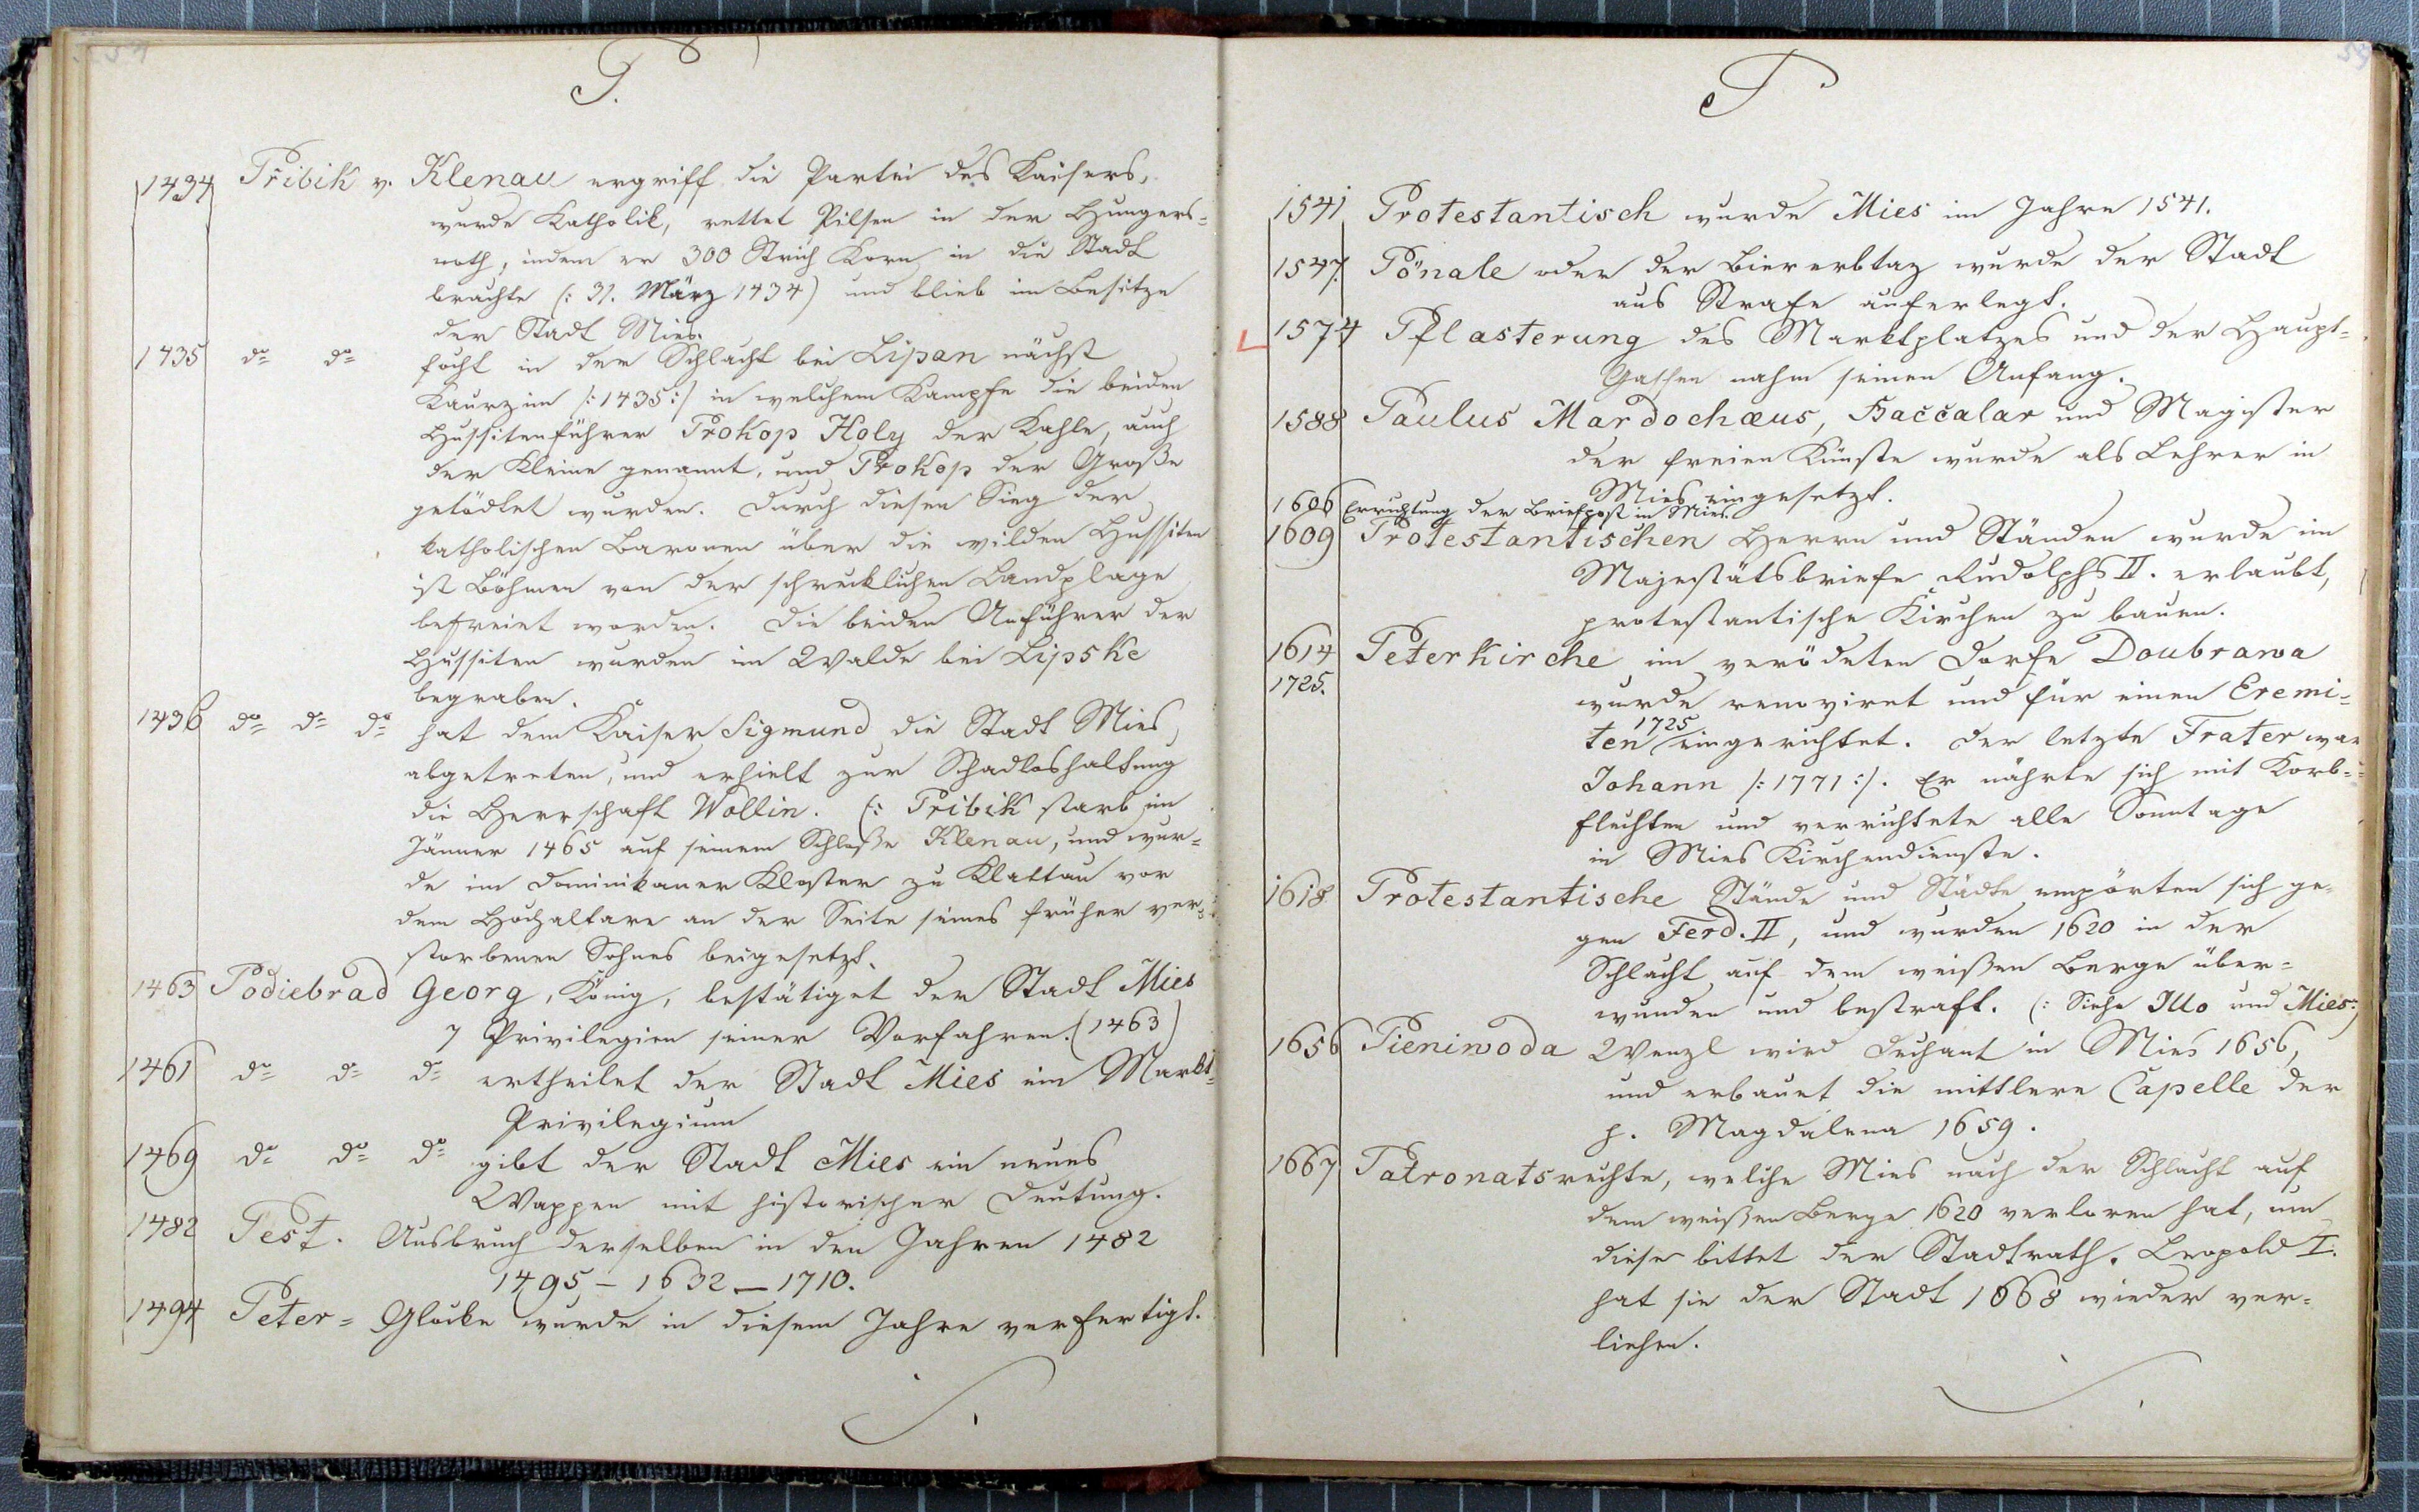 P.
1434 Přibik v. Klenau ergriff die Partei des Kaisers,
wurde Katholik, rettet Pilsen in der Hungers-
noth, indem er 300 Strich Korn in die Stadt
brachte (: 31. März 1434) und blieb im Besitze
der Stadt Mies.
1435 do do focht in der Schlacht bei Lipan nächst
Kaurzim /:1435:/ in welchem Kampfe die beiden
Hussitenführer Prokop Holy der Kahle, auch
der Kleine genannt, und Prokop der Große
getödtet wurden. Durch diesen Sieg der
katholischen Baronen über die wilden Hussiten
ist Böhmen von der schrecklichen Landplage
befreiet worden. Die beiden Anführer der
Hussiten wurden im Walde bei Lipske
begraben.
1436 do do do hat dem Kaiser Sigmund die Stadt Mies
abgetreten, und erhielt zur Schadloshaltung
die Herrschaft Wollin. (: Přibik starb im
Jänner 1465 auf seinem Schloße Klenau, und wur-
de im Dominikaner Kloster zu Klattau vor
dem Hochaltare an der Seite seines früher ver-
storbenen Sohnes beigesetzt.
1463 Podiebrad Georg, König, bestätiget der Stadt Mies
7 Privilegien seiner Vorfahren. (1463)
1461 do do do ertheilet der Stadt Mies ein Markt-
Privilegium
1469 do do do gibt der Stadt Mies ein neues
Wappen mit historischer Deutung.
1482 Pest. Ausbruch derselben in den Jahren 1482
1495 – 1632 – 1710.
1494 Peter- Glocke wurde in diesem Jahre verfertigt.
P
59
1541 Protestantisch wurde Mies im Jahre 1541.
1547. Pönale oder der Biererbtaz wurde der Stadt
aus Strafe auferlegt.
1574 Pflasterung des Marktplatzes und der Haupt-
Gassen nahm seinen Anfang.
1588 Paulus Mardochæus, Baččalar und Magister
der freien Künste wurde als Lehrer in
Mies eingesetzt.
1606 Errichtung der Briefpost in Mies.
1609 Protestantischen Herrn und Ständen wurde im
Majestätsbriefe Rudolphs II. erlaubt,
protestantische Kirchen zu bauen.
1614 Peterkirche im verödeten Dorfe Doubrawa
1725. wurde renoviret und für einen Eremi-
ten 1725 eingerichtet. Der letzte Frater war
Johann /:1771:/. Er nährte sich mit Korb-
flechten und verrichtete alle Sonntage
in Mies Kirchendienste.
1618 Protestantische Stände und Städte empörten sich ge-
gen Ferd. II, und wurden 1620 in der
Schlacht auf dem weißen Berge über-
wunden und bestraft. (: Siehe Illo und Mies:)
1656 Pieniwoda Wenzl wird Dechant in Mies 1656,
und erbauet die mittlere Capelle der
h. Magdalena 1659.
1667 Patronatsrechte, welche Mies nach der Schlacht auf
dem weißen Berge 1620 verloren hat, um
diese bittet der Stadtrath. Leopold I.
hat sie der Stadt 1668 wieder ver-
liehen.